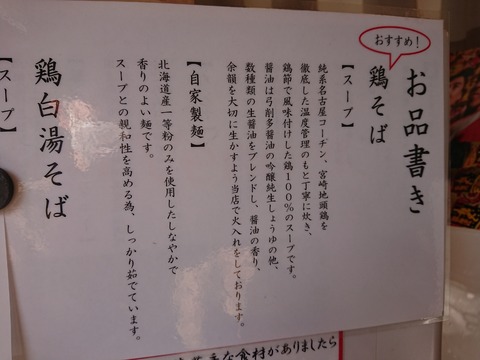 お品書き
おすすめ！
鶏そば
【スープ】
純系名古屋コーチン、宮崎地頭鶏を
徹底した温度管理のもと丁寧に炊き、
鶏節で風味付けした鶏100％のスープです。
醤油は弓削多醤油の吟醸純生しょうゆの他、
数種類の生醤油をブレンドし、醤油の香り、
余韻を大切に生かすよう当店で火入れをしております。
【自家製麺】
北海道産一等粉のみを使用したしなやかで
香りのよい麺です。
スープとの親和性を高める為、しっかり茹でています。
鶏白湯そば
【スープ】
な食材がありましたら